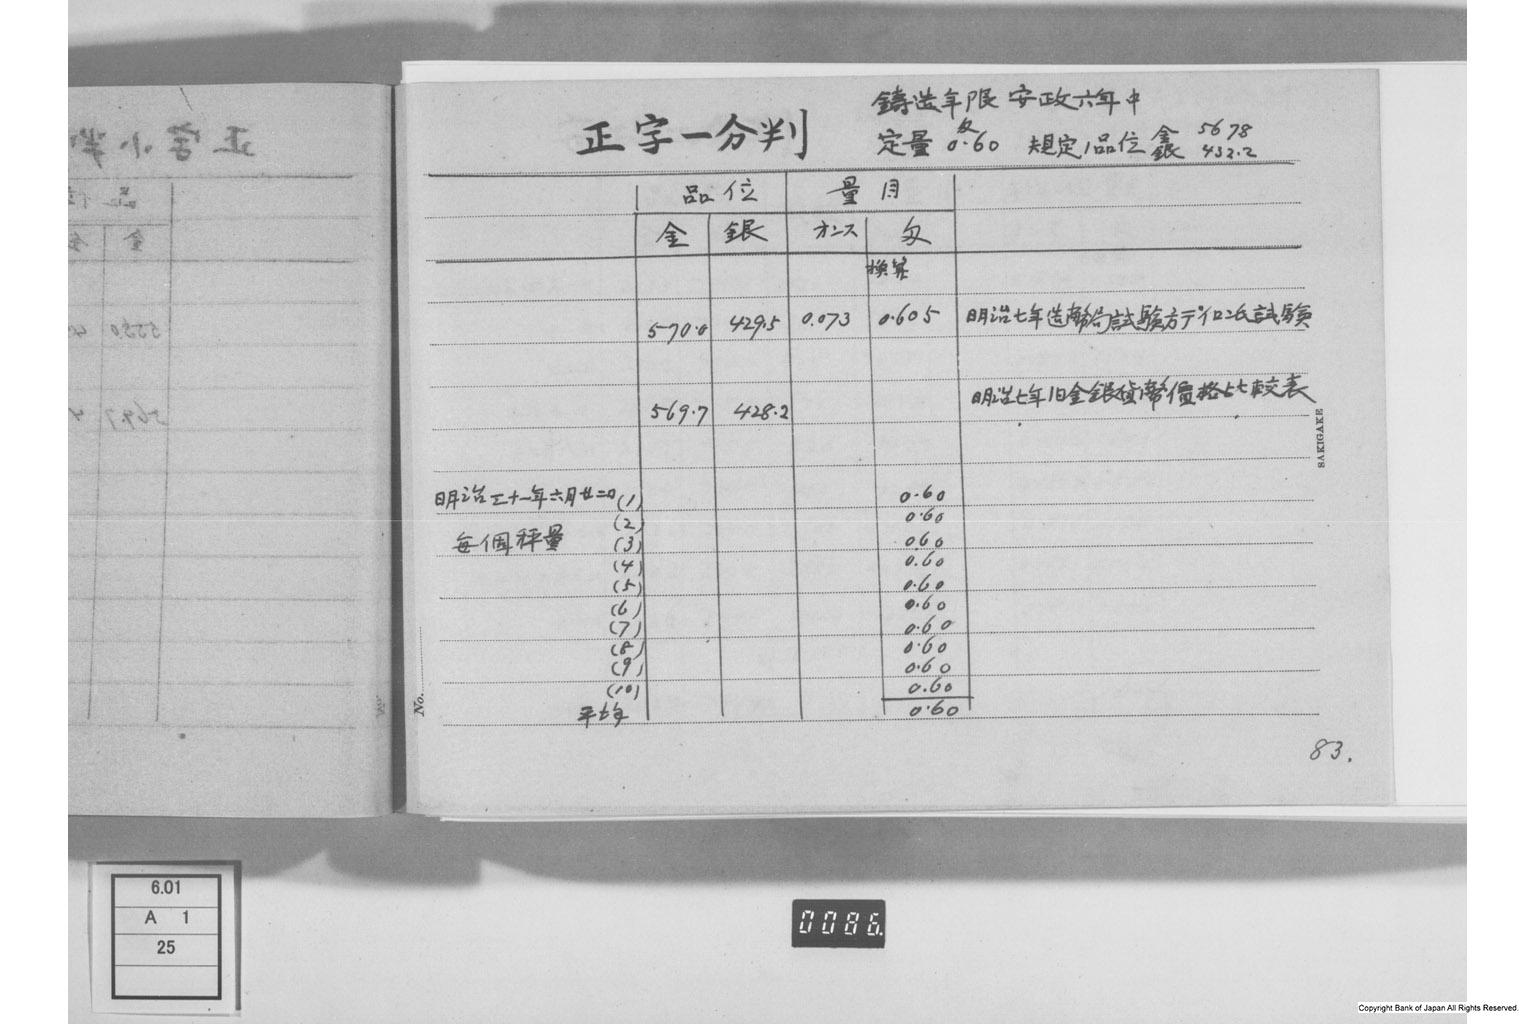 正字一分判
鋳造年限 安政六年中
定量 匁 0.60 規定ノ品位 金 567.8
銀 432.2
品位 量目
金 銀 オンス 匁
換算
570.0 429.5 0.073 0.605 明治七年造幣局試験方デイロン氏試験
569.7 428.2 明治七年旧金銀貨幣價格比較表
明治三十一年六月廿二日 (1) 0.60
(2) 0.60
毎個秤量 (3) 0.60
(4) 0.60
(5) 0.60
(6) 0.60
(7) 0.60
(8) 0.60
(9) 0.60
(10) 0.60
平均 0.60
SAKIGAKE
No.
83.
正字小判
6.01
A 1
25
0086.
Copyright Bank of Japan All Rights Reserved.